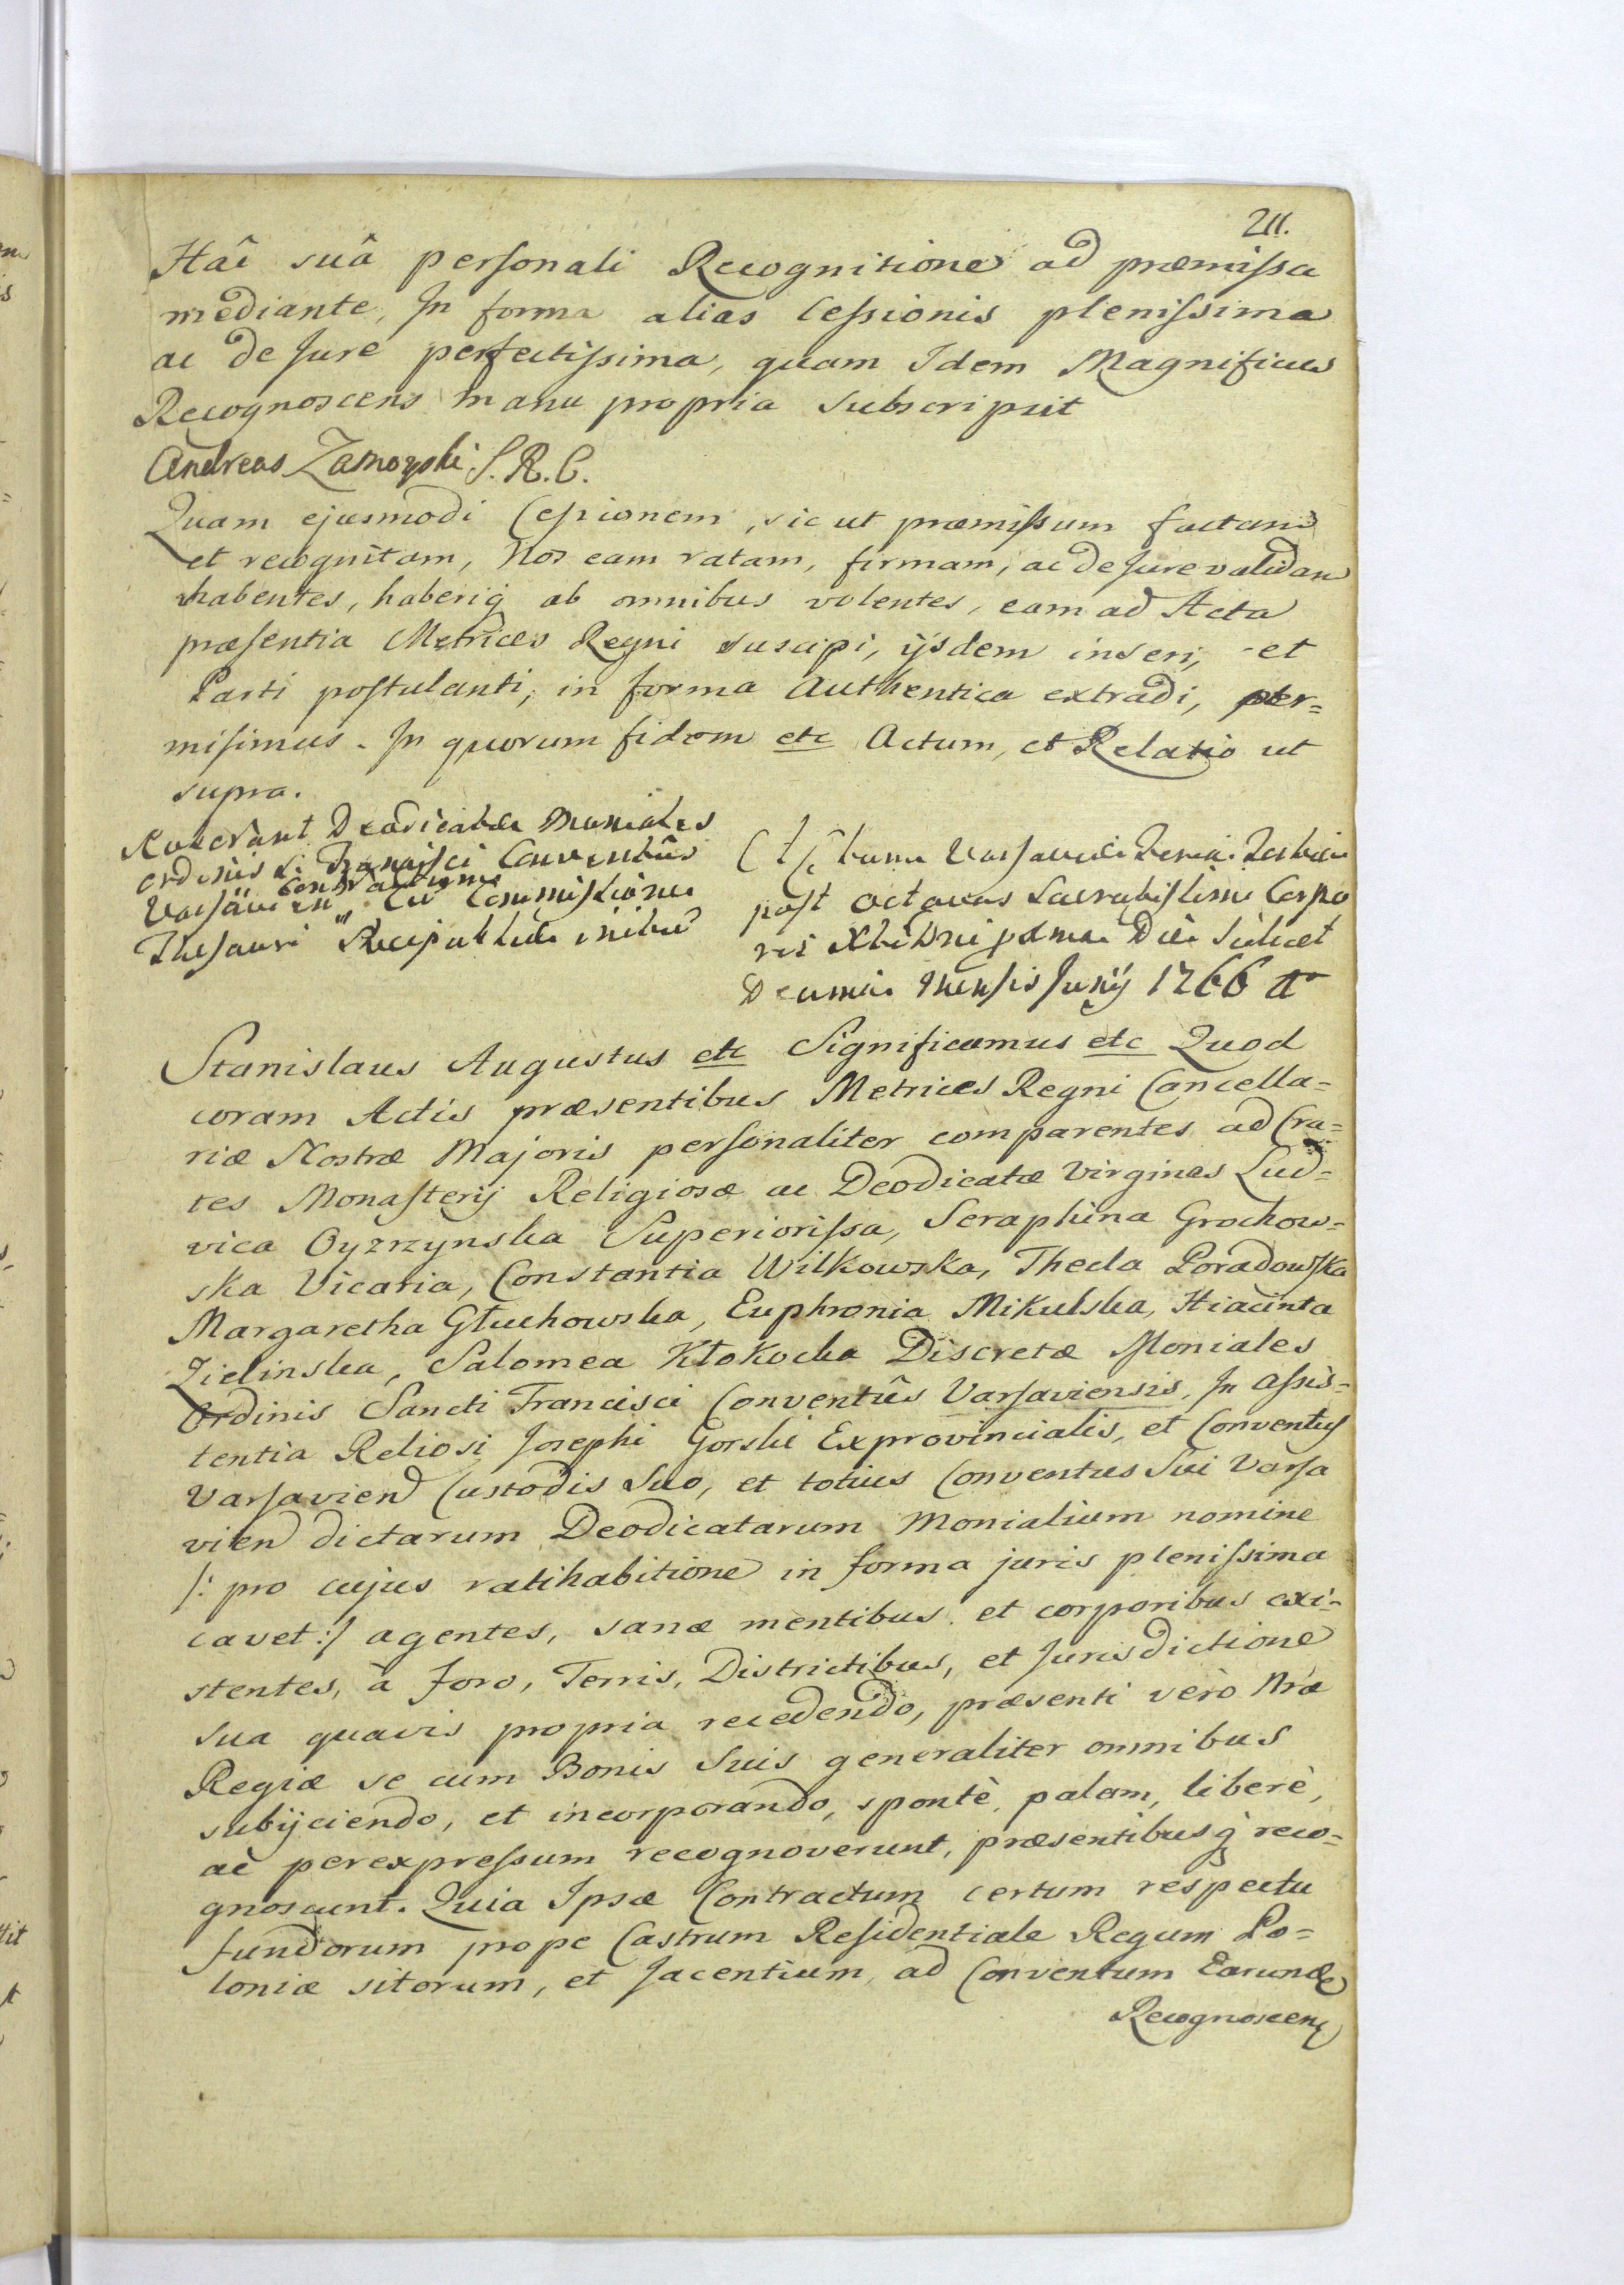 211.
Hâc suâ personali Recognitione ad præmissa
mediante, In forma alias Cessionis plenissima
ac de Jure perfectissima, quam Idem Magnificus
Recognoscens manu propria subscripsit
Andreas Zamoyski S. R. C.
Quam ejusmodi Cessionem, sic ut præmissum factam
et recognitam, Nos eam ratam, firmam, ac de Jure validam
habentes, haberiq ab omnibus volentes, eam ad Acta
præsentia Metrices Regni suscipi, ijsdem inseri, et
Parti postulanti, in forma Authentica extradi, per=
misimus. In quorum fidem etc Actum, et Relatio ut
supra.
Roborant Deodicatæ Moniales
Ordinis S. Francisci Conventûs
Contractum
Varsavien cũ Commissione
Thesauri Reipublicæ initũ
Varsaviæ Feria Tertia
post octavas Sacratissimi Corpo
ris Xti Dni proxima Die scilicet
Decima Mensis Junij 1766 Ao
Stanislaus Augustus etc Significamus etc Quod
coram Actis præsentibus Metrices Regni Cancella=
riæ Nostræ Majoris personaliter comparentes ad Cra=
tes Monasterij Religiosæ ac Deodicatæ Virgines Lud=
vica Oyrzynska Superiorissa, Seraphina Grochow=
ska Vicaria, Constantia Wilkowska, Thecla Poradowska
Margaretha Głuchowska, Euphronia Mikulska, Hiacinta
Zielinska, Salomea Kłokocka Discretæ Moniales
Ordinis Sancti Francisci Conventûs Varsaviensis, In assis=
tentia Reliosi Josephi Gorski Exprovincialis, et Conventus
Varsavien Custodis Suo, et totius Conventus Sui Varsa
vien dictarum Deodicatarum Monialium nomine
/: pro cujus ratihabitione in forma juris plenissima
cavet :/ agentes, sanæ mentibus et corporibus exi=
stentes, à Foro, Terris, Districtibus, et Jurisdictione
sua quavis propria recedendo, præsenti verò Nræ
Regiæ se cum Bonis Suis generaliter omnibus
subijciendo, et incorporando, spontè, palam, liberè,
ac per expressum recognoverunt, præsentibusq reco=
gnoscunt. Quia Ipsæ Contractum certum respectu
fundorum prope Castrum Residentiale Regum Po=
loniæ sitorum, et Jacentium, ad Conventum Earunde
Recognoscen